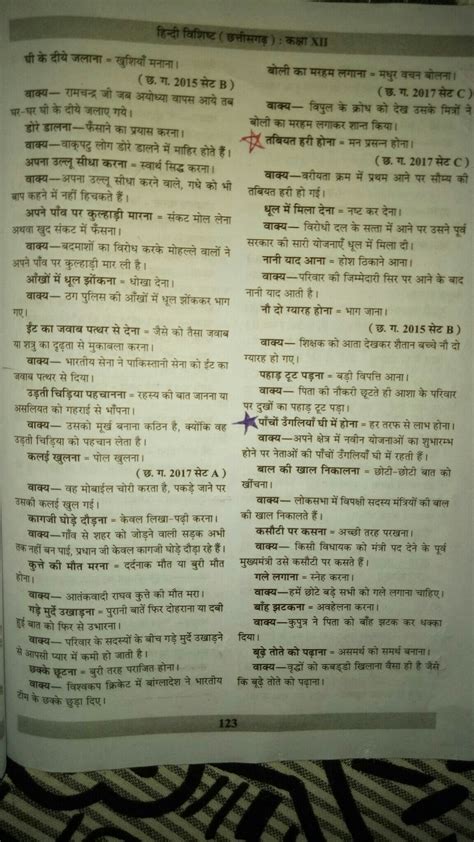 हिन्दी विशिष्ट ( छत्तीसगढ़ ) : कक्षा XII
घी के दीये जलाना = खुशियाँ मनाना।
( छ. ग. 2015 सेट B )
वाक्य— रामचन्द्र जी जब अयोध्या वापस आये तब
घर-घर घी के दीये जलाए गये।
डोरे डालना— फँसाने का प्रयास करना।
वाक्य—वाक्पटु लोग डोरे डालने में माहिर होते हैं।
अपना उल्लू सीधा करना = स्वार्थ सिद्ध करना।
वाक्य—अपना उल्लू सीधा करने वाले, गधे को भी
बाप कहने में नहीं हिचकते हैं।
अपने पाँव पर कुल्हाड़ी मारना = संकट मोल लेना
अथवा खुद संकट में फँसना।
वाक्य—बदमाशों का विरोध करके मोहल्ले वालों ने
अपने पाँव पर कुल्हाड़ी मार ली है।
आँखों में धूल झोंकना = धोखा देना।
वाक्य— ठग पुलिस की आँखों में धूल झोंककर भाग
गए।
ईंट का जवाब पत्थर से देना = जैसे को तैसा जवाब
या शत्रु का दृढ़ता से मुकाबला करना।
वाक्य— भारतीय सेना ने पाकिस्तानी सेना को ईंट का
जवाब पत्थर से दिया।
उड़ती चिड़िया पहचानना = रहस्य की बात जानना या
असलियत को गहराई से भाँपना।
वाक्य— उसको मूर्ख बनाना कठिन है, क्योंकि वह
उड़ती चिड़िया को पहचान लेता है।
कलई खुलना = पोल खुलना।
( छ. ग. 2017 सेट A )
वाक्य— वह मोबाईल चोरी करता है, पकड़े जाने पर
उसकी कलई खुल गई।
कागजी घोड़े दौड़ना = केवल लिखा-पढ़ी करना।
वाक्य—गाँव से शहर को जोड़ने वाली सड़क अभी
तक नहीं बन पाई, प्रधान जी केवल कागजी घोड़े दौड़ा रहे हैं।
कुत्ते की मौत मरना = दर्दनाक मौत या बुरी मौत
होना।
वाक्य— आतंकवादी राघव कुत्ते की मौत मरा।
गड़े मुर्दे उखाड़ना = पुरानी बातें फिर दोहराना या दबी
हुई बात को फिर से उभारना।
वाक्य— परिवार के सदस्यों के बीच गड़े मुर्दे उखाड़ने
से आपसी प्यार में कमी हो जाती है।
छक्के छूटना = बुरी तरह पराजित होना।
वाक्य— विश्वकप क्रिकेट में बांग्लादेश ने भारतीय
टीम के छक्के छुड़ा दिए।
बोली का मरहम लगाना = मधुर वचन बोलना।
( छ. ग. 2017 सेट C )
वाक्य— विपुल के क्रोध को देख उसके मित्रों ने
बोली का मरहम लगाकर शान्त किया।
तबियत हरी होना = मन प्रसन्न होना।
( छ. ग. 2017 सेट C )
वाक्य— वरीयता क्रम में प्रथम आने पर सौम्य की
तबियत हरी हो गई।
धूल में मिला देना = नष्ट कर देना।
वाक्य— विरोधी दल के सत्ता में आने पर उसने पूर्व
सरकार की सारी योजनाएँ धूल में मिला दी।
नानी याद आना = होश ठिकाने आना।
वाक्य—परिवार की जिम्मेदारी सिर पर आने के बाद
नानी याद आती है।
नौ दो ग्यारह होना = भाग जाना।
( छ. ग. 2015 सेट B )
वाक्य— शिक्षक को आता देखकर शैतान बच्चे नौ दो
ग्यारह हो गए।
पहाड़ टूट पड़ना = बड़ी विपत्ति आना।
वाक्य— पिता की नौकरी छूटते ही आशा के परिवार
पर दुखों का पहाड़ टूट पड़ा।
पाँचों उँगलियाँ घी में होना = हर तरफ से लाभ होना।
वाक्य—अपने क्षेत्र में नवीन योजनाओं का शुभारम्भ
होने पर नेताओं की पाँचों उँगलियाँ घी में रहती हैं।
बाल की खाल निकालना = छोटी-छोटी बात को
खींचना।
वाक्य— लोकसभा में विपक्षी सदस्य मंत्रियों की बाल
की खाल निकालते हैं।
कसौटी पर कसना = अच्छी तरह परखना।
वाक्य— किसी विधायक को मंत्री पद देने के पूर्व
मुख्यमंत्री उसे कसौटी पर कसते हैं।
गले लगाना = स्नेह करना।
वाक्य—हमें छोटे बड़े सभी को गले लगाना चाहिए।
बाँह झटकना = अवहेलना करना।
वाक्य—कुपुत्र ने पिता को बाँह झटक कर धक्का
दिया।
बूढ़े तोते को पढ़ाना = असमर्थ को समर्थ बनाना।
वाक्य— वृद्धों को कबड्डी खिलाना वैसा ही है जैसे
कि बूढ़े तोते को पढ़ाना।
123